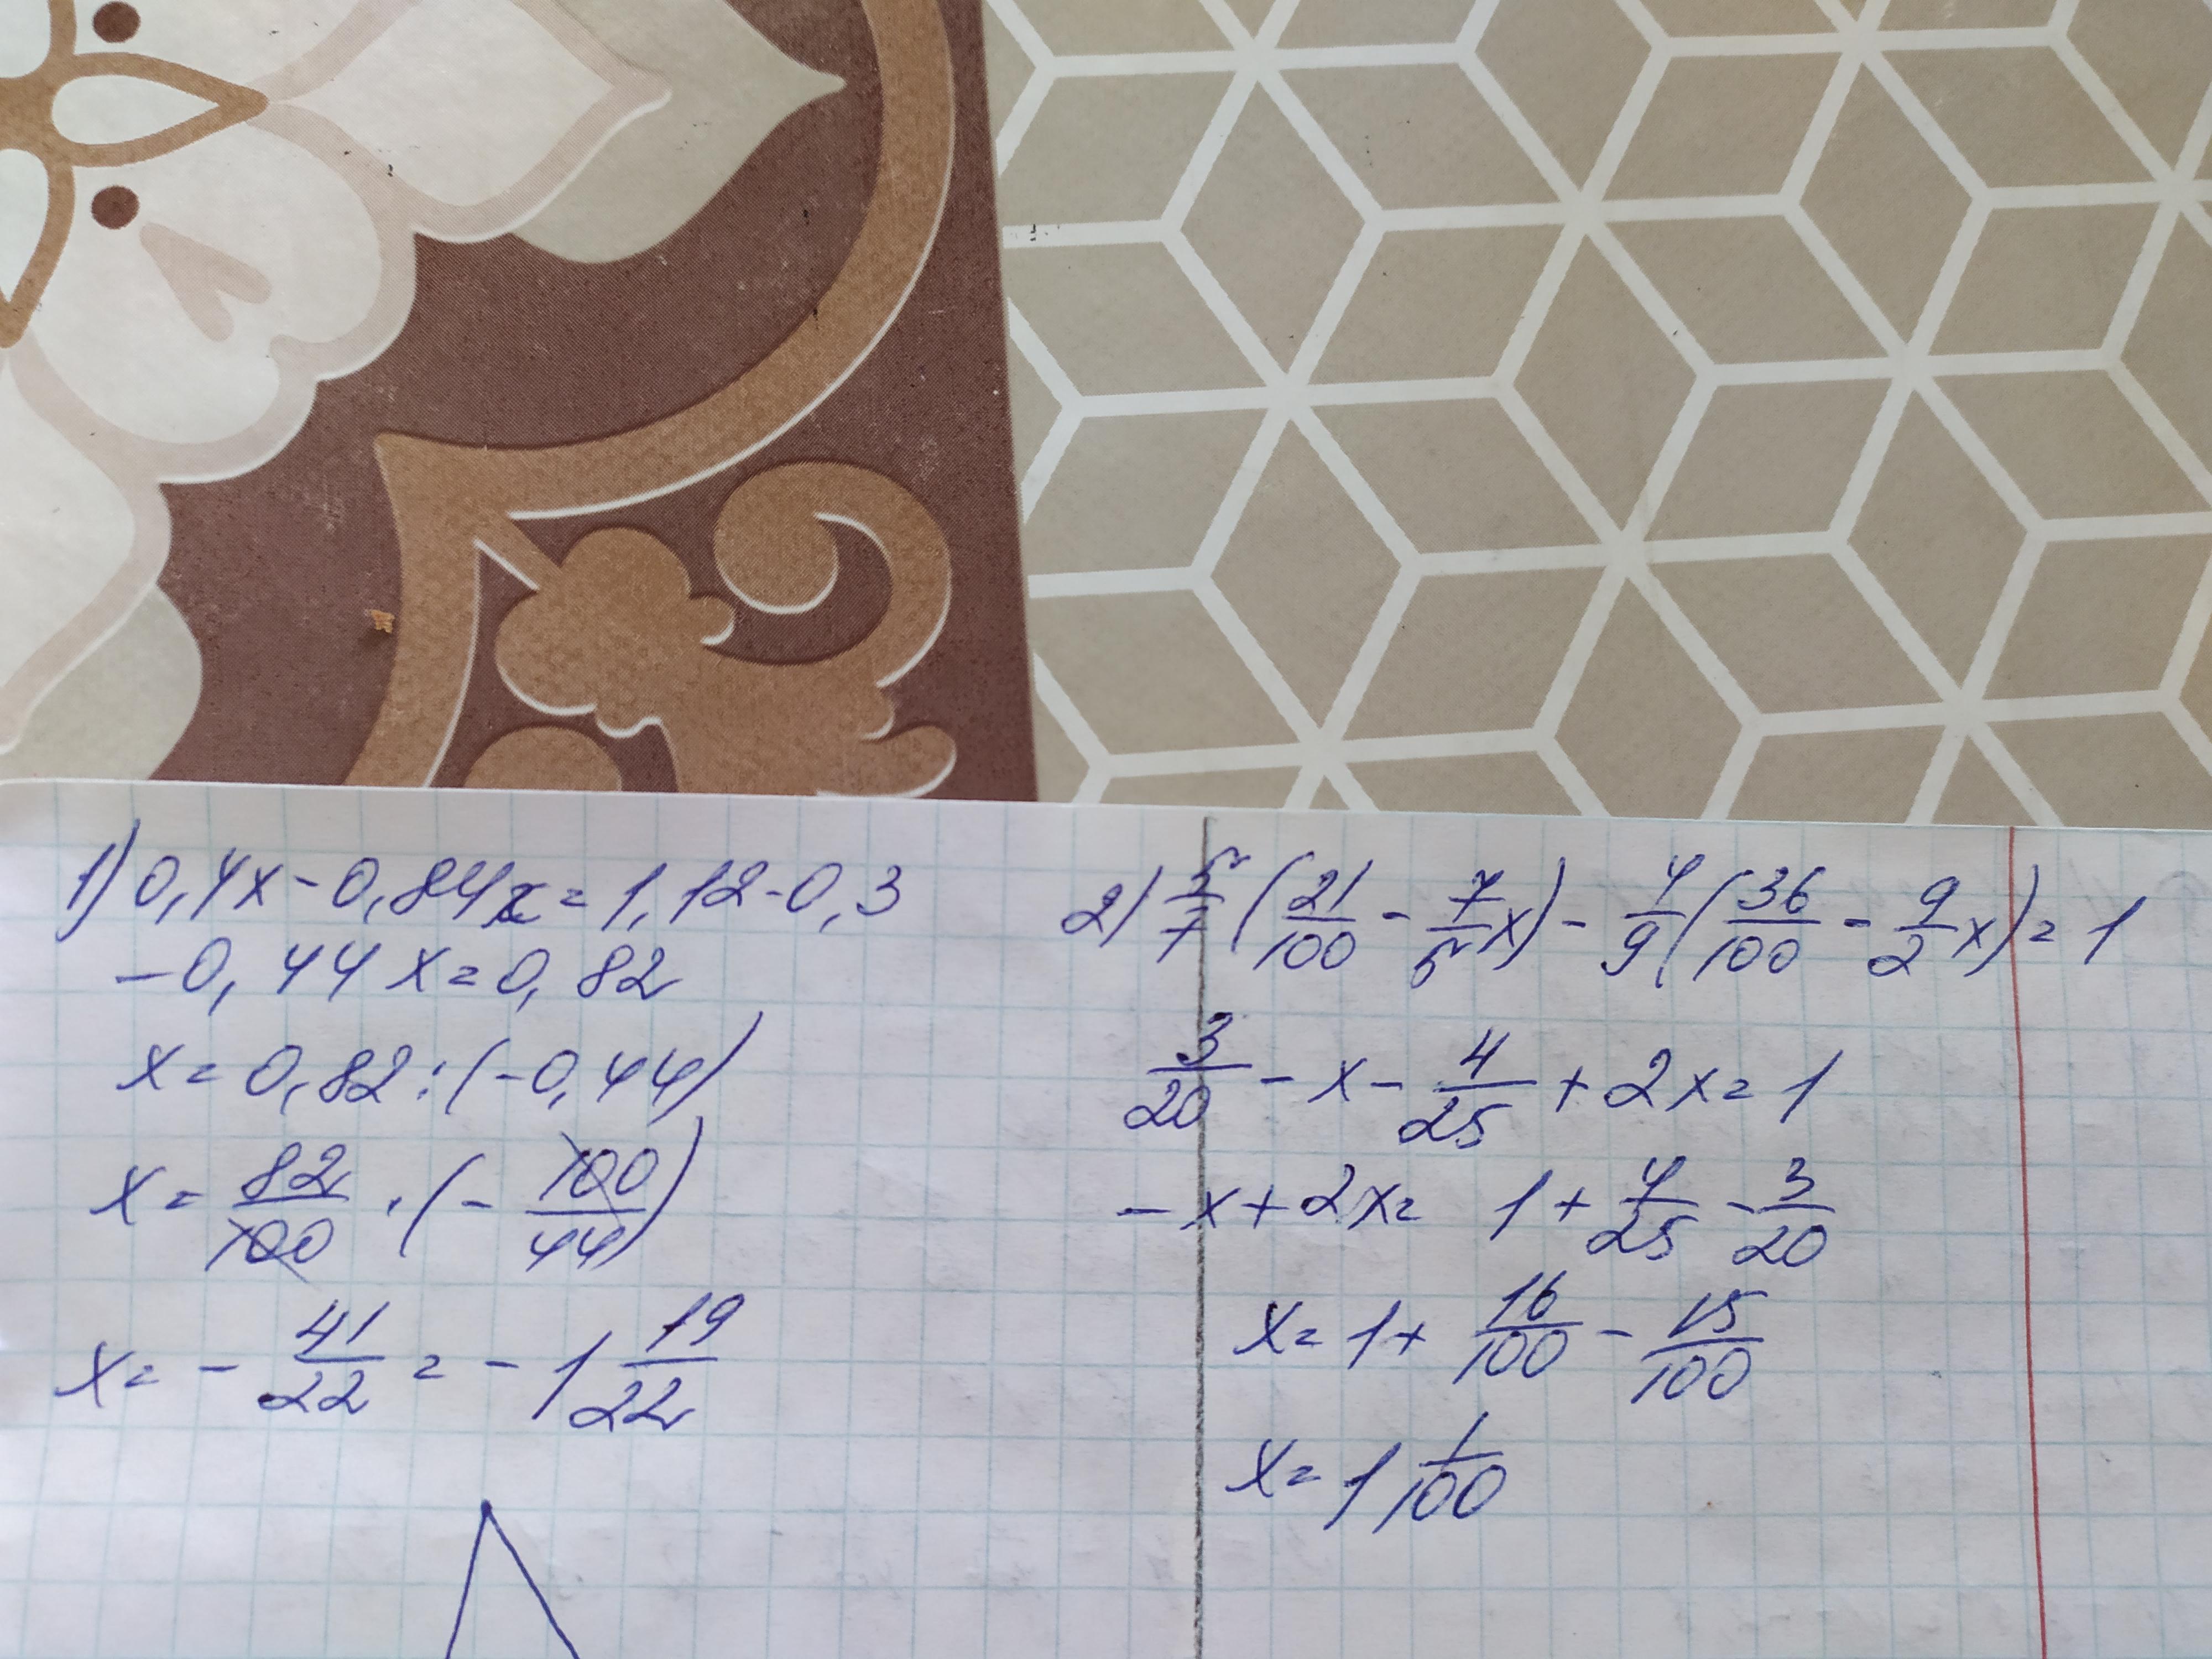 1) 0,4x - 0,84x = 1,12 - 0,3
-0,44x = 0,82
x = 0,82 : (-0,44)
x = 82/100 · (-100/44)
x = -41/22 = -1 19/22
2) 5/7 (21/100 - 7/5 x) - 4/9 (36/100 - 9/2 x) = 1
3/20 - x - 4/25 + 2x = 1
-x + 2x = 1 + 4/25 - 3/20
x = 1 + 16/100 - 15/100
x = 1 1/100